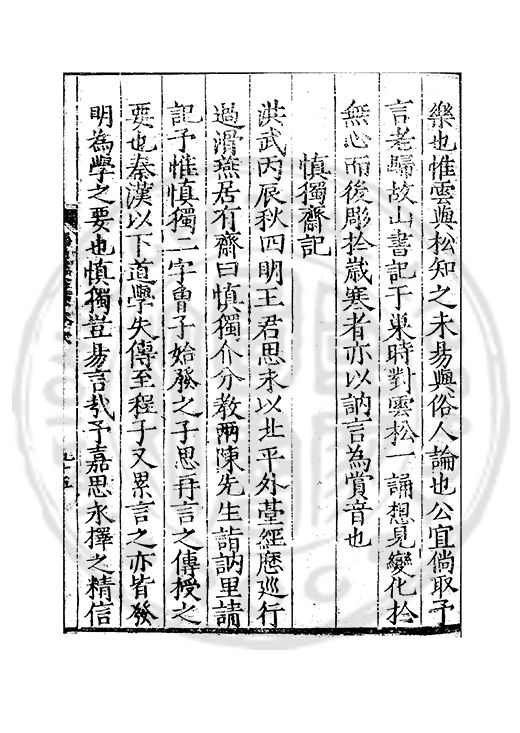 樂也惟雲與松知之未易與俗人論也公宜倘取予
言老歸故山書記于巢時對雲松一誦想見變化扵
無心而後彫扵嵗寒者亦以訥言為賞音也
慎獨齋記
洪武丙辰秋四明王君思未以北平外臺經歷廵行
過滑燕居有齋曰慎獨介分教兩陳先生詣訥里請
記予惟慎獨二字曾子始發之子思再言之傳授之
要也秦漢以下道學失傳至程子又累言之亦皆發
明為學之要也慎獨豈易言㢤予嘉思永擇之精信